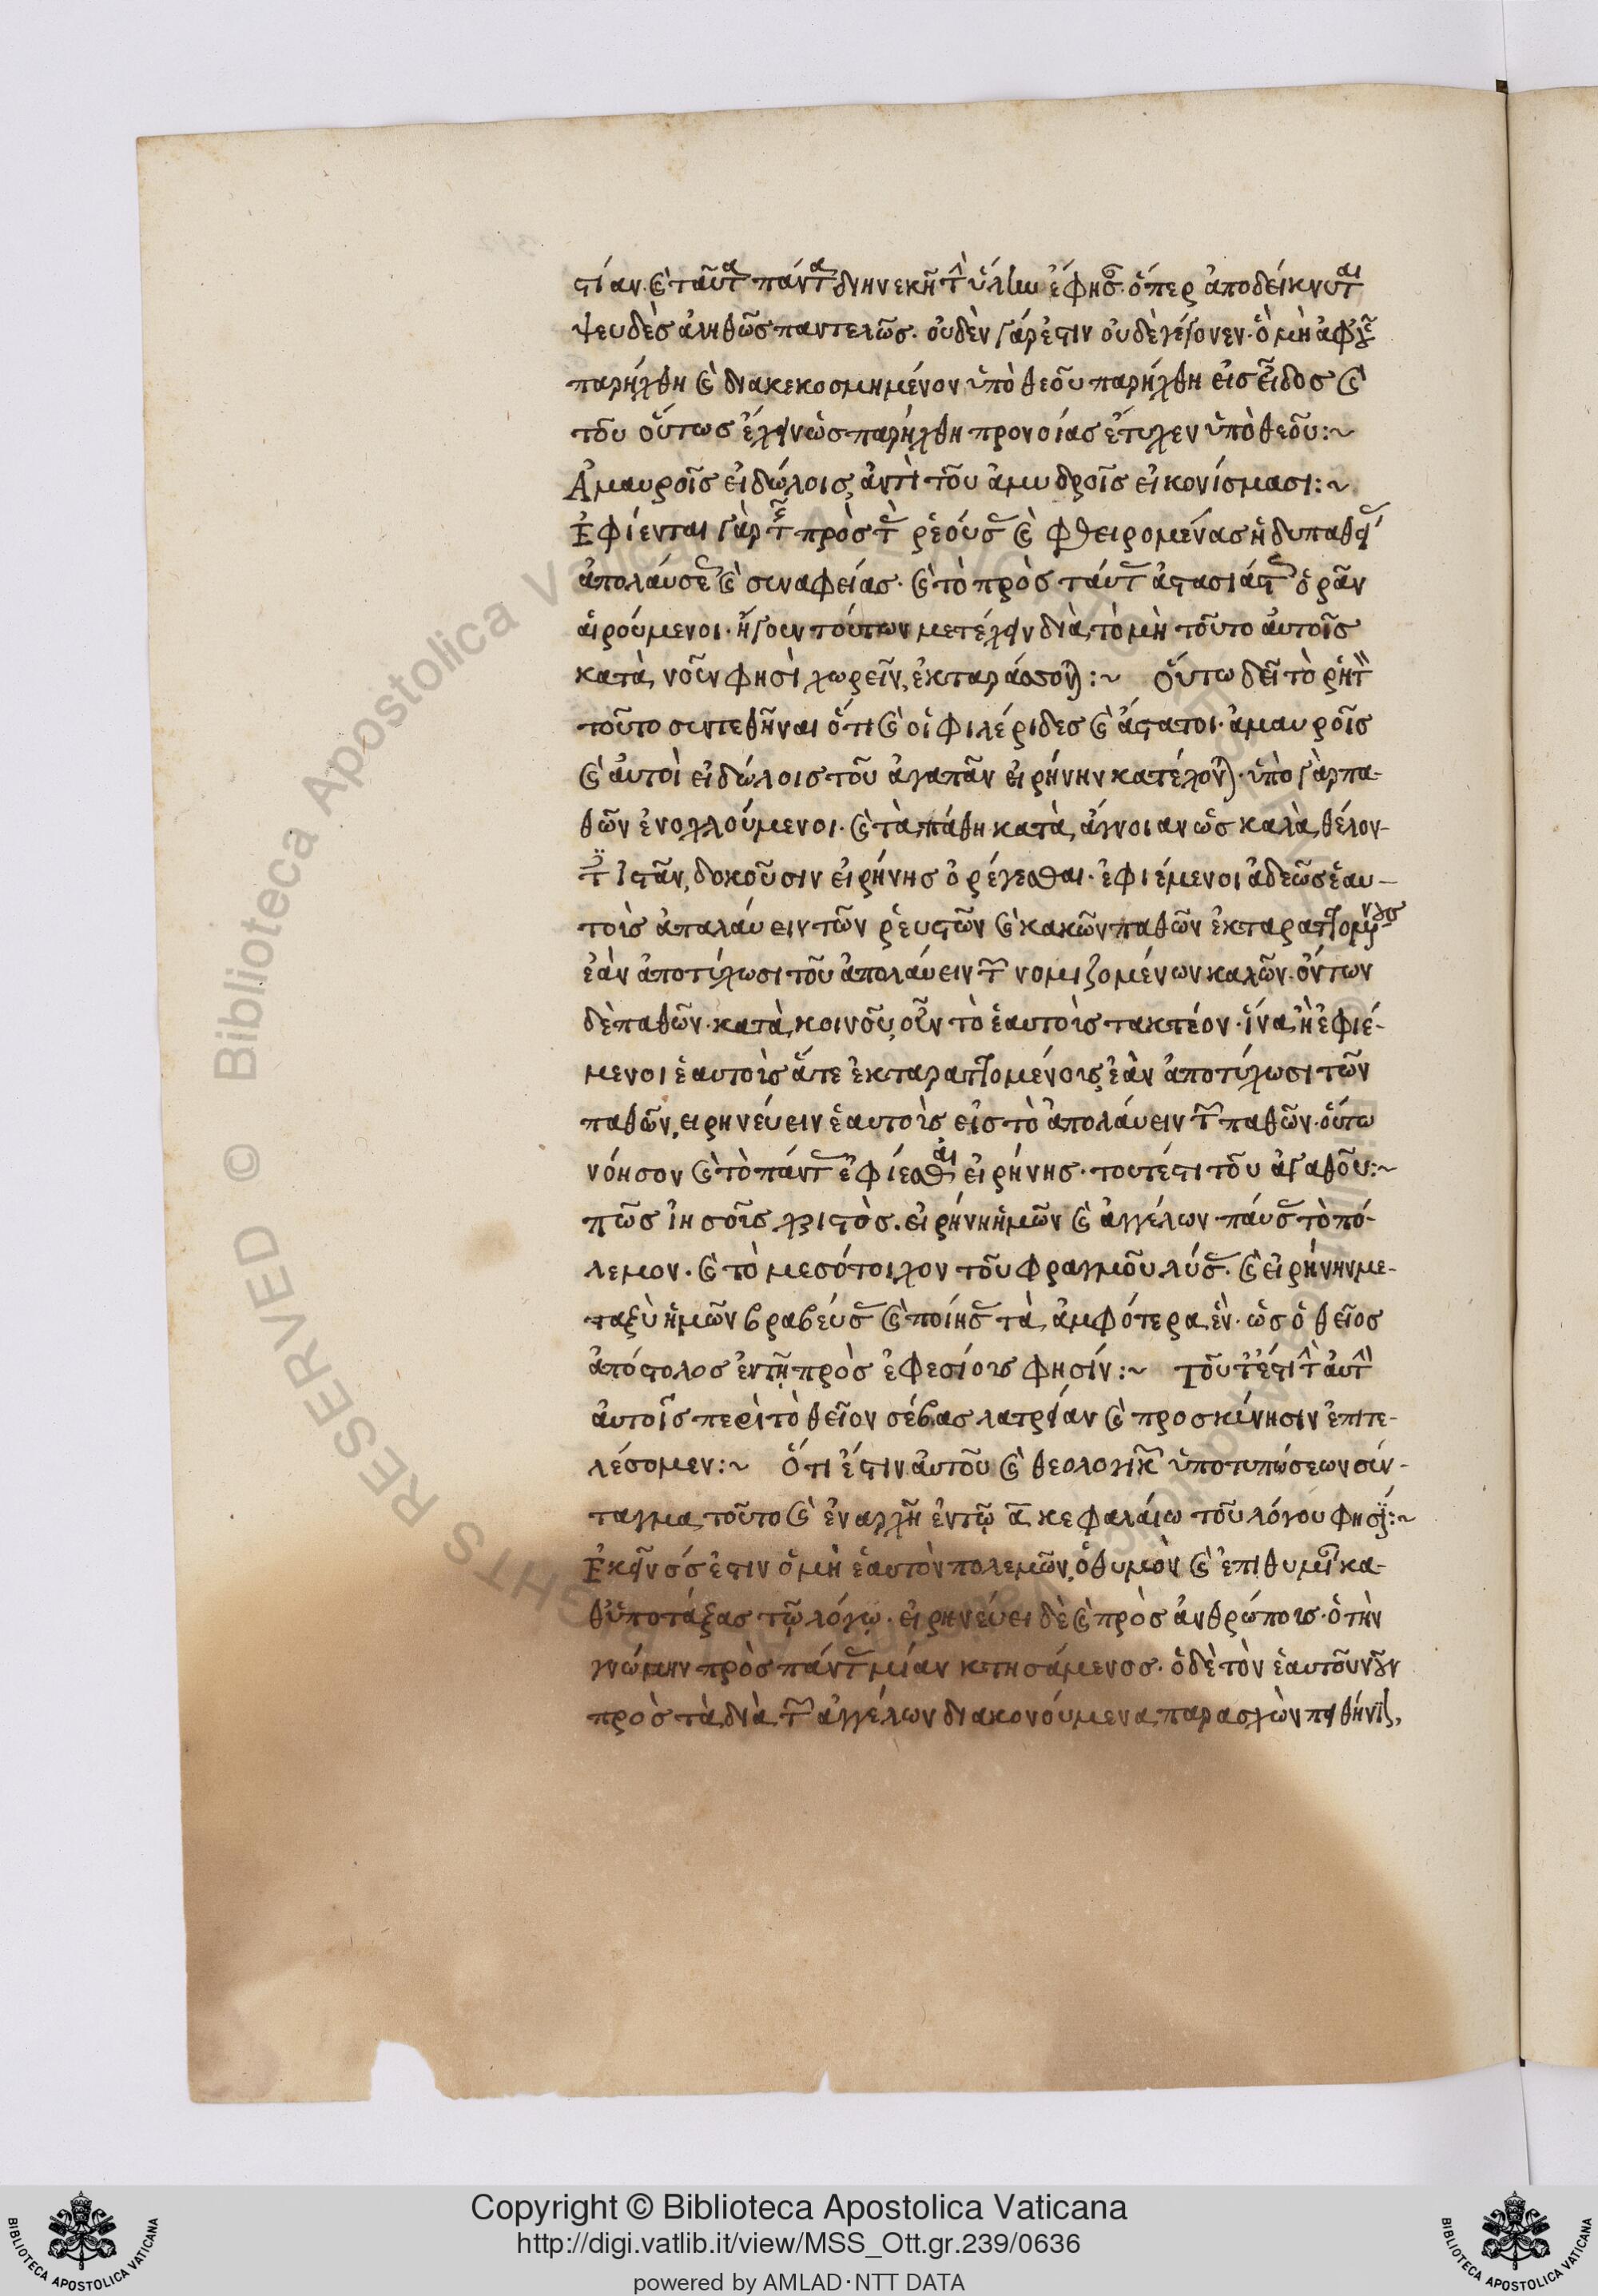 στίαν. καὶ ταῦτα πάντα διηνεκῆ τὴν ὕλην ἔφησεν. ὅπερ ἀποδείκνυται
ψευδὲς ἀληθῶς παντελῶς. οὐδὲν γάρ ἐστιν οὐδὲ γέγονεν. ὃ μὴ
παρήχθη καὶ διακεκοσμημένον ὑπὸ θεοῦ παρήχθη εἰς εἶδος καὶ
τοῦ οὕτως ἔχειν ὡς παρήχθη προνοίας ἔτυχεν ὑπὸ θεοῦ:~
Ἀμαυροῖς εἰδώλοις, ἀντὶ τοῦ ἀμυδροῖς εἰκονίσμασι:~
Ἐφίενται γὰρ τῆς πρὸς τὰς ῥεούσας καὶ φθειρομένας ἡδυπαθείας
ἀπολαύσεις καὶ συναφείας. καὶ τὸ πρὸς ταύτας ἀστασιάστως ὁρᾶν
αἱρούμενοι. ἤγουν τούτων μετέχειν διὰ τὸ μὴ τοῦτο αὐτοῖς
κατὰ νοῦν φησὶ χωρεῖν, ἐκταράσσονται:~ Οὕτω δεῖ τὸ ῥητὸν
τοῦτο συντεθῆναι ὅτι καὶ οἱ φιλέριδες καὶ ἄστατοι. ἀμαυροῖς
καὶ αὐτοὶ εἰδώλοις τοῦ ἀγαπᾶν εἰρήνην κατέχονται. ὑπὸ γὰρ πα-
θῶν ἐνοχλούμενοι. καὶ τὰ πάθη κατὰ ἄγνοιαν ὡς καλὰ θέλον-
τες ἱστᾶν, δοκοῦσιν εἰρήνης ὀρέγεσθαι. ἐφιέμενοι ἀδεῶς ἑαυ-
τοὺς ἀπαλάυειν τῶν ῥευστῶν καὶ κακῶν παθῶν ἐκταραττομένους
ἐὰν ἀποτύχωσι τοῦ ἀπολάυειν τῶν νομιζομένων καλῶν. ὄντων
δὲ παθῶν. κατὰ κοινοῦ οὖν τὸ ἑαυτοὺς τακτέον. ἵνα ᾖ ἐφιέ-
μενοι ἑαυτοὺς ἅτε ἐκταραττομένους, ἐὰν ἀποτύχωσι τῶν
παθῶν, εἰρηνέυειν ἑαυτοὺς εἰς τὸ ἀπολάυειν τῶν παθῶν. οὕτω
νόησον καὶ τὸ πάντας ἐφίεσθαι εἰρήνης. τουτέστι τοῦ ἀγαθοῦ:~
πῶς ἰησοῦς χριστὸς. εἰρήνη ἡμῶν καὶ ἀγγέλων πάυσας τὸ πό-
λεμον. καὶ τὸ μεσότοιχον τοῦ φραγμοῦ λύσας. καὶ εἰρήνην με-
ταξὺ ἡμῶν βραβεύσας καὶ ποίησας τὰ ἀμφότερα ἓν. ὡς ὁ θεῖος
ἀπόστολος ἐν τῇ πρὸς ἐφεσίους φησίν:~ Τουτέστι τὴν αὐτὴν
αὐτοῖς περὶ τὸ θεῖον σέβας λατρείαν καὶ προσκύνησιν ἐπιτε-
λέσομεν:~ Ὅτι ἔστιν αὐτοῦ καὶ θεολογικῶν ὑποτυπώσεων σύν-
ταγμα, τοῦτο καὶ ἐν ἀρχῇ ἐν τῷ α κεφαλαίω τοῦ λόγου φησί:~
Ἐκεῖνός ἐστιν ὁ μὴ ἑαυτὸν πολεμῶν, ὁ θυμὸν καὶ ἐπιθυμίαν κα-
θυποτάξας τῷ λόγῳ. εἰρηνέυει δὲ καὶ πρὸς ἀνθρώπους. ὁ τὴν
γνώμην πρὸς πάντας μίαν κτησάμενος. ὁ δὲ τὸν ἑαυτοῦ νοῦν
πρὸς τὰ διὰ τῶν ἀγγέλων διακονούμενα παρασχὼν πειθήνιον,
Copyright © Biblioteca Apostolica Vaticana
http://digi.vatlib.it/view/MSS_Ott.gr.239/0636
powered by AMLAD·NTT DATA